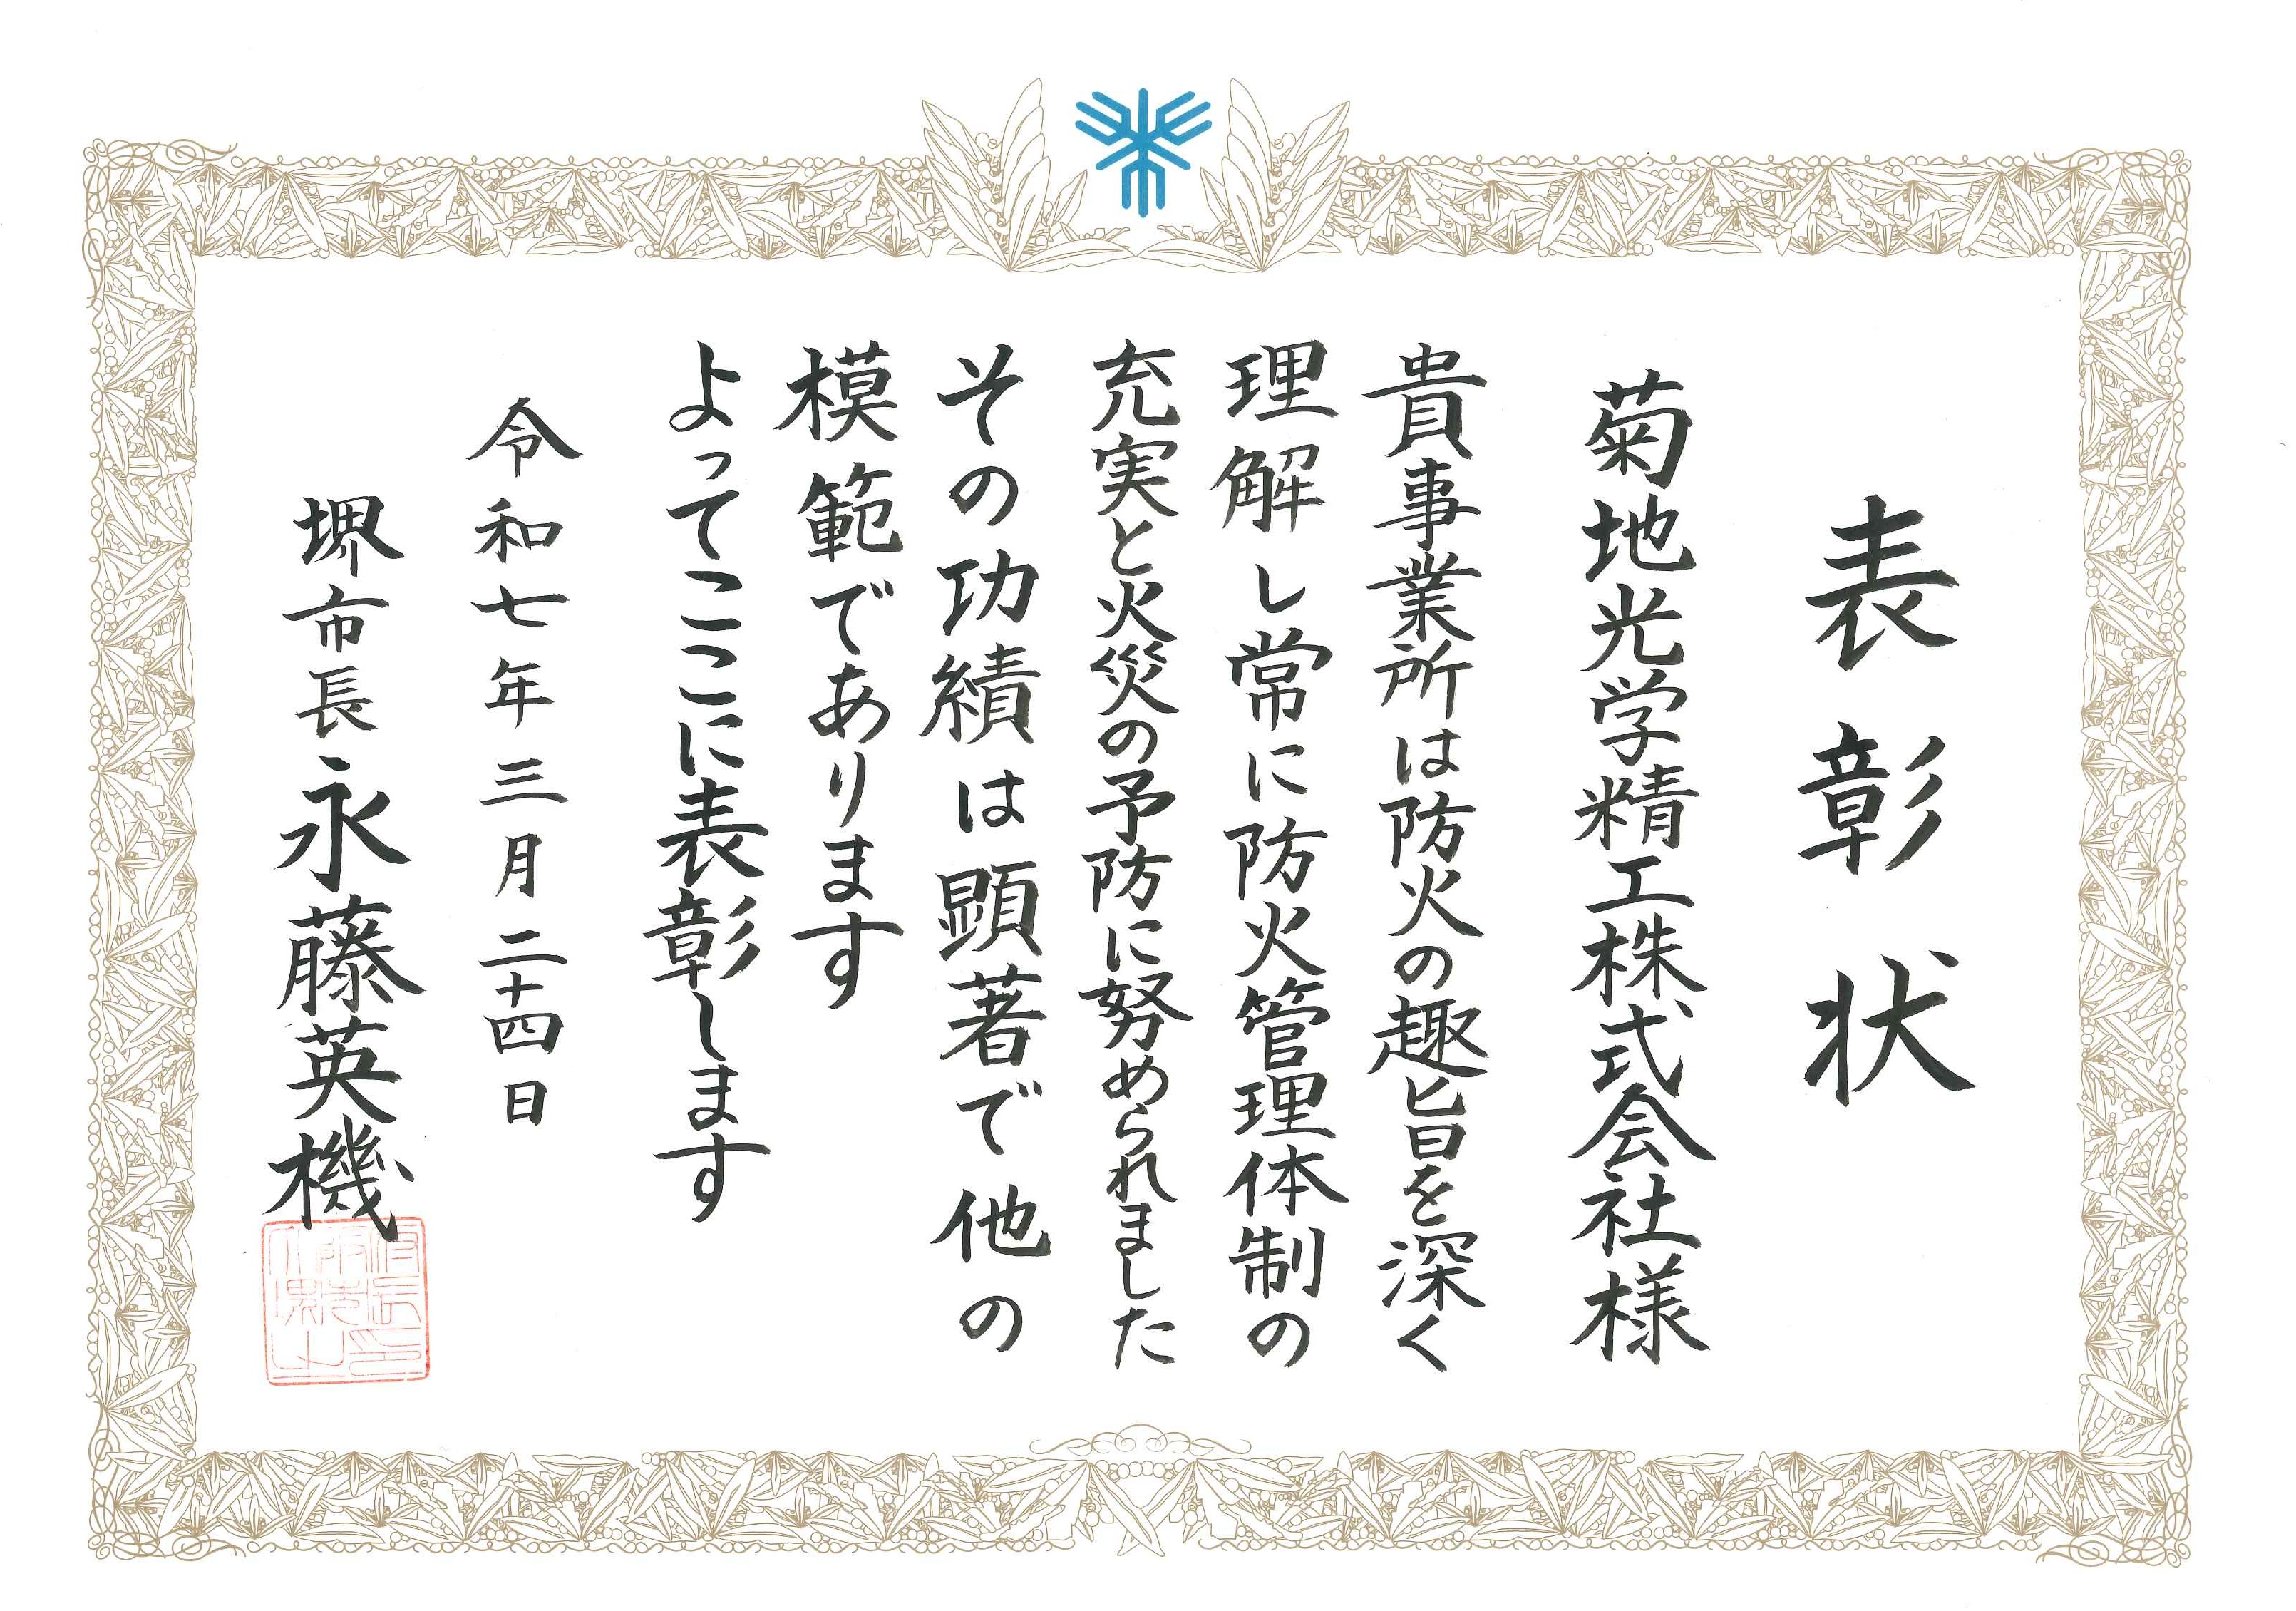 表彰状
菊地光学精工株式会社様
貴事業所は防火の趣旨を深く
理解し常に防火管理体制の
充実と火災の予防に努められました
その功績は顕著で他の
模範であります
よってここに表彰します
令和七年三月二十四日
堺市長永藤英機